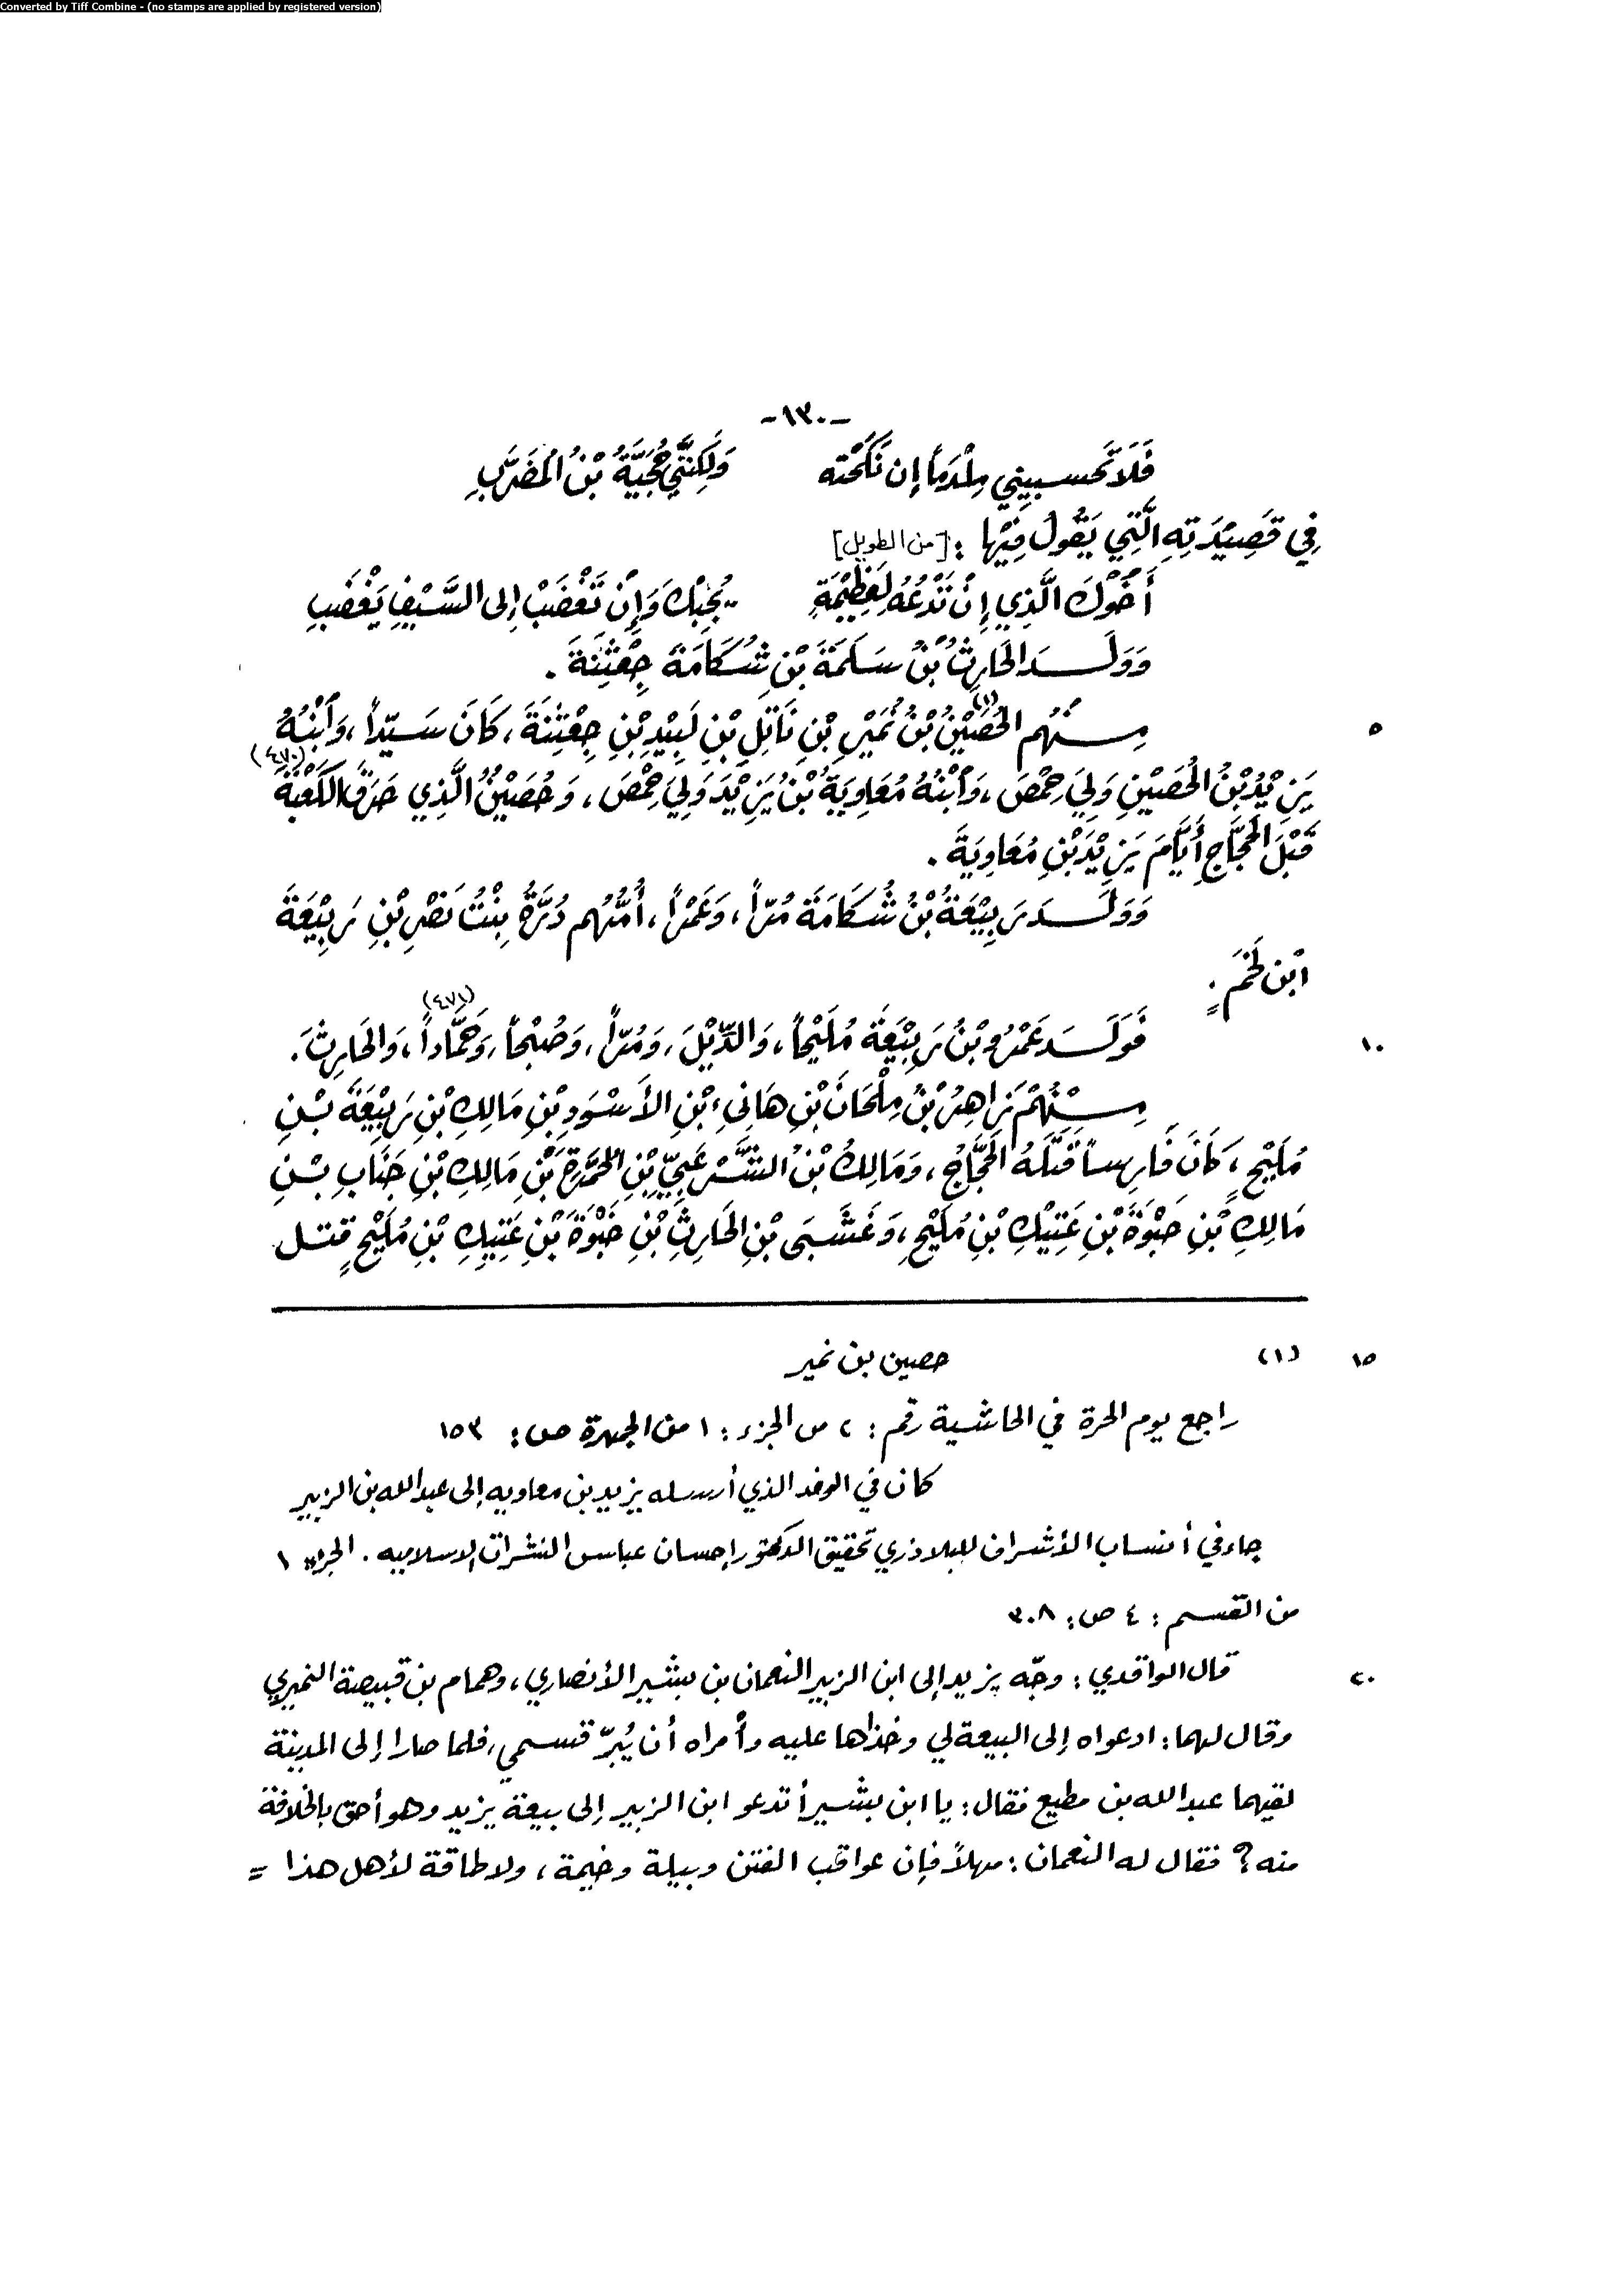 Converted by Tiff Combine - (no stamps are applied by registered version)
-١٣٠-
فَلَا تَحسبِيني مِلْدَماً إِن نَكَحْته وَلَكِنَّنِي حُجَيَّةُ بْنُ المُضَرَّبِ
فِي قَصِيْدَتِهِ الَّتِي يَقُولُ فِيْهَا : [من الطويل]
أَخُوْكَ الَّذِي إِنْ تَدْعُهُ لِعَظِيْمَةٍ يُجِبْكَ وَإِنْ تَغْضَبْ إِلى السَّيْفِ يَغْضَبِ
وَوَلَــدَ الحَارِثُ بْنُ سَلَمَةَ بْنِ شُكَامَةَ جِعْثِنَةَ .
مِــنْهُم الحُصَيْنُ (١) بْنُ نُمَيْرِ بْنِ نَاتِلِ بْنِ لَبِيْدِ بْنِ جِعْثِنَةَ ، كَانَ سَيِّداً ، وَابْنُهُ ٥
يَزِيْدُ بْنُ الحُصَيْنِ وَلِيَ حِمْصَ ، وَابْنُهُ مُعَاوِيَةُ بْنُ يَزِيْدَ وَلِيَ حِمْصَ ، وَحُصَيْنُ الَّذِي حَرَقَ الكَعْبَةَ (٤٧٠)
قَبْلَ الحَجَّاجِ أَيَّامَ يَزِيْدَ بْنِ مُعَاوِيَةَ .
وَوَلَــدَ رَبِيْعَةُ بْنُ شُكَامَةَ مُرّاً ، وَعَمْراً ، أُمُّهُم دُرَّةُ بِنْتُ نَصْرِ بْنِ رَبِيْعَةَ
ابْنِ لَخْمٍ .
فَوَلَــدَ عَمْرُو بْنُ رَبِيْعَةَ مُلَيْحاً ، وَالدِّيْلَ ، وَمُرّاً ، وَصُبْحاً ، وَحَمَّاداً (٤٧١) ، وَالحَارِثَ . ١٠
مِــنْهُمْ زَاهِرُ بْنُ مِلْحَانَ بْنِ هَانِيءِ بْنِ الأَسْوَدِ بْنِ مَالِكِ بْنِ رَبِيْعَةَ بْنِ
مُلَيْحٍ ، كَانَ فَارِساً قَتَلَهُ الحَجَّاجُ ، وَمَالِكُ بْنُ الشَّرْعَبِيِّ بْنِ بْنِ مَالِكِ بْنِ جَنَابِ بْنِ
مَالِكِ بْنِ حَبْوَةَ بْنِ عَتِيْكِ بْنِ مُلَيْحٍ ، بْنِ الحَارِثِ بْنِ حَبْوَةَ بْنِ عَتِيكِ بْنِ مُلَيْحٍ قتل
(١) حصين بن نمير ١٥
راجع يوم الحرة في الحاشية رقم : ٢ من الجزء : ١ من الجمهرة ص : ١٥٣
كان في الوفد الذي أرسله يزيد بن معاويه إلى عبدالله بن الزبير
جاء في أنساب الأشراف للبلاذري تحقيق الدكتور إحسان عباس النشرات الاسلاميه . الجزء ١
من القسم : ٤ ص : ٣٠٨
قال الواقدي : وجّه يزيد إلى ابن الزبير النعمان بن بشير الأنصاري ، وهمام بن قبيصة النميري ٢٠
وقال لهما : ادعواه إلى البيعة لي وخذاها عليه وأمراه أن يُبرّ قسمي ، فلما صارا إلى المدينة
لقيهما عبدالله بن مطيع فقال : يا ابن بشير أتدعو ابن الزبير إلى بيعة يزيد وهو أحق بالخلافة
منه ؟ فقال له النعمان : مهلاً فإن عواقب الفتن وبيلة وخيمة ، ولا طاقة لأهل هذا =